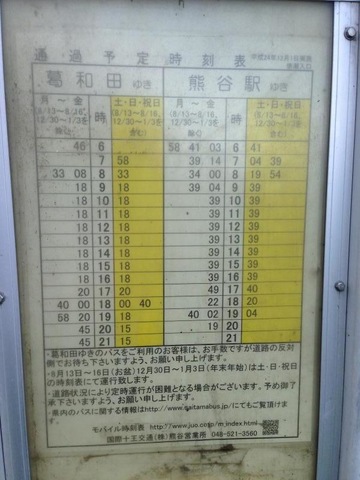 通過予定時刻表
葛和田 ゆき 熊谷駅 ゆき
月～金 土・日・祝日 月～金 土・日・祝日
(8/13～8/16, 時 (8/13～8/16, (8/13～8/16, 時 (8/13～8/16,
12/30～1/3を 12/30～1/3) 12/30～1/3を 12/30～1/3)
除く) 除く)
46 6 58 41 03 6 41
7 58 39 14 7 04 39
33 08 8 33 34 00 8 19 54
18 9 18 39 04 9 39
18 10 18 39 10 39
18 11 18 39 11 39
18 12 18 39 12 39
18 13 18 39 13 39
18 14 18 39 14 39
18 15 18 39 15 39
18 16 18 39 16 39
20 17 20 49 17 40
40 00 18 00 40 22 18 20
58 20 19 18 40 02 19 04
45 20 15 19 20
45 21 15 21
・葛和田ゆきのバスをご利用のお客様は、お手数ですが道路の反対
側でお待ち下さいますよう、お願い申し上げます。
・8月13日～16日(お盆)12月30日～1月3日(年末年始)は土・日・祝日
の時刻表にて運行致します。
・道路状況により定時運行が困難となる場合がございます。予め御了
承下さいますよう、お願い申し上げます。
・県内のバスに関する情報はhttp://www.saitamabus.jp/にてもご覧頂けま
す。
モバイル時刻表 http://www.juo.co.jp/m_index.html
国際十王交通(株)熊谷営業所 048-521-3560